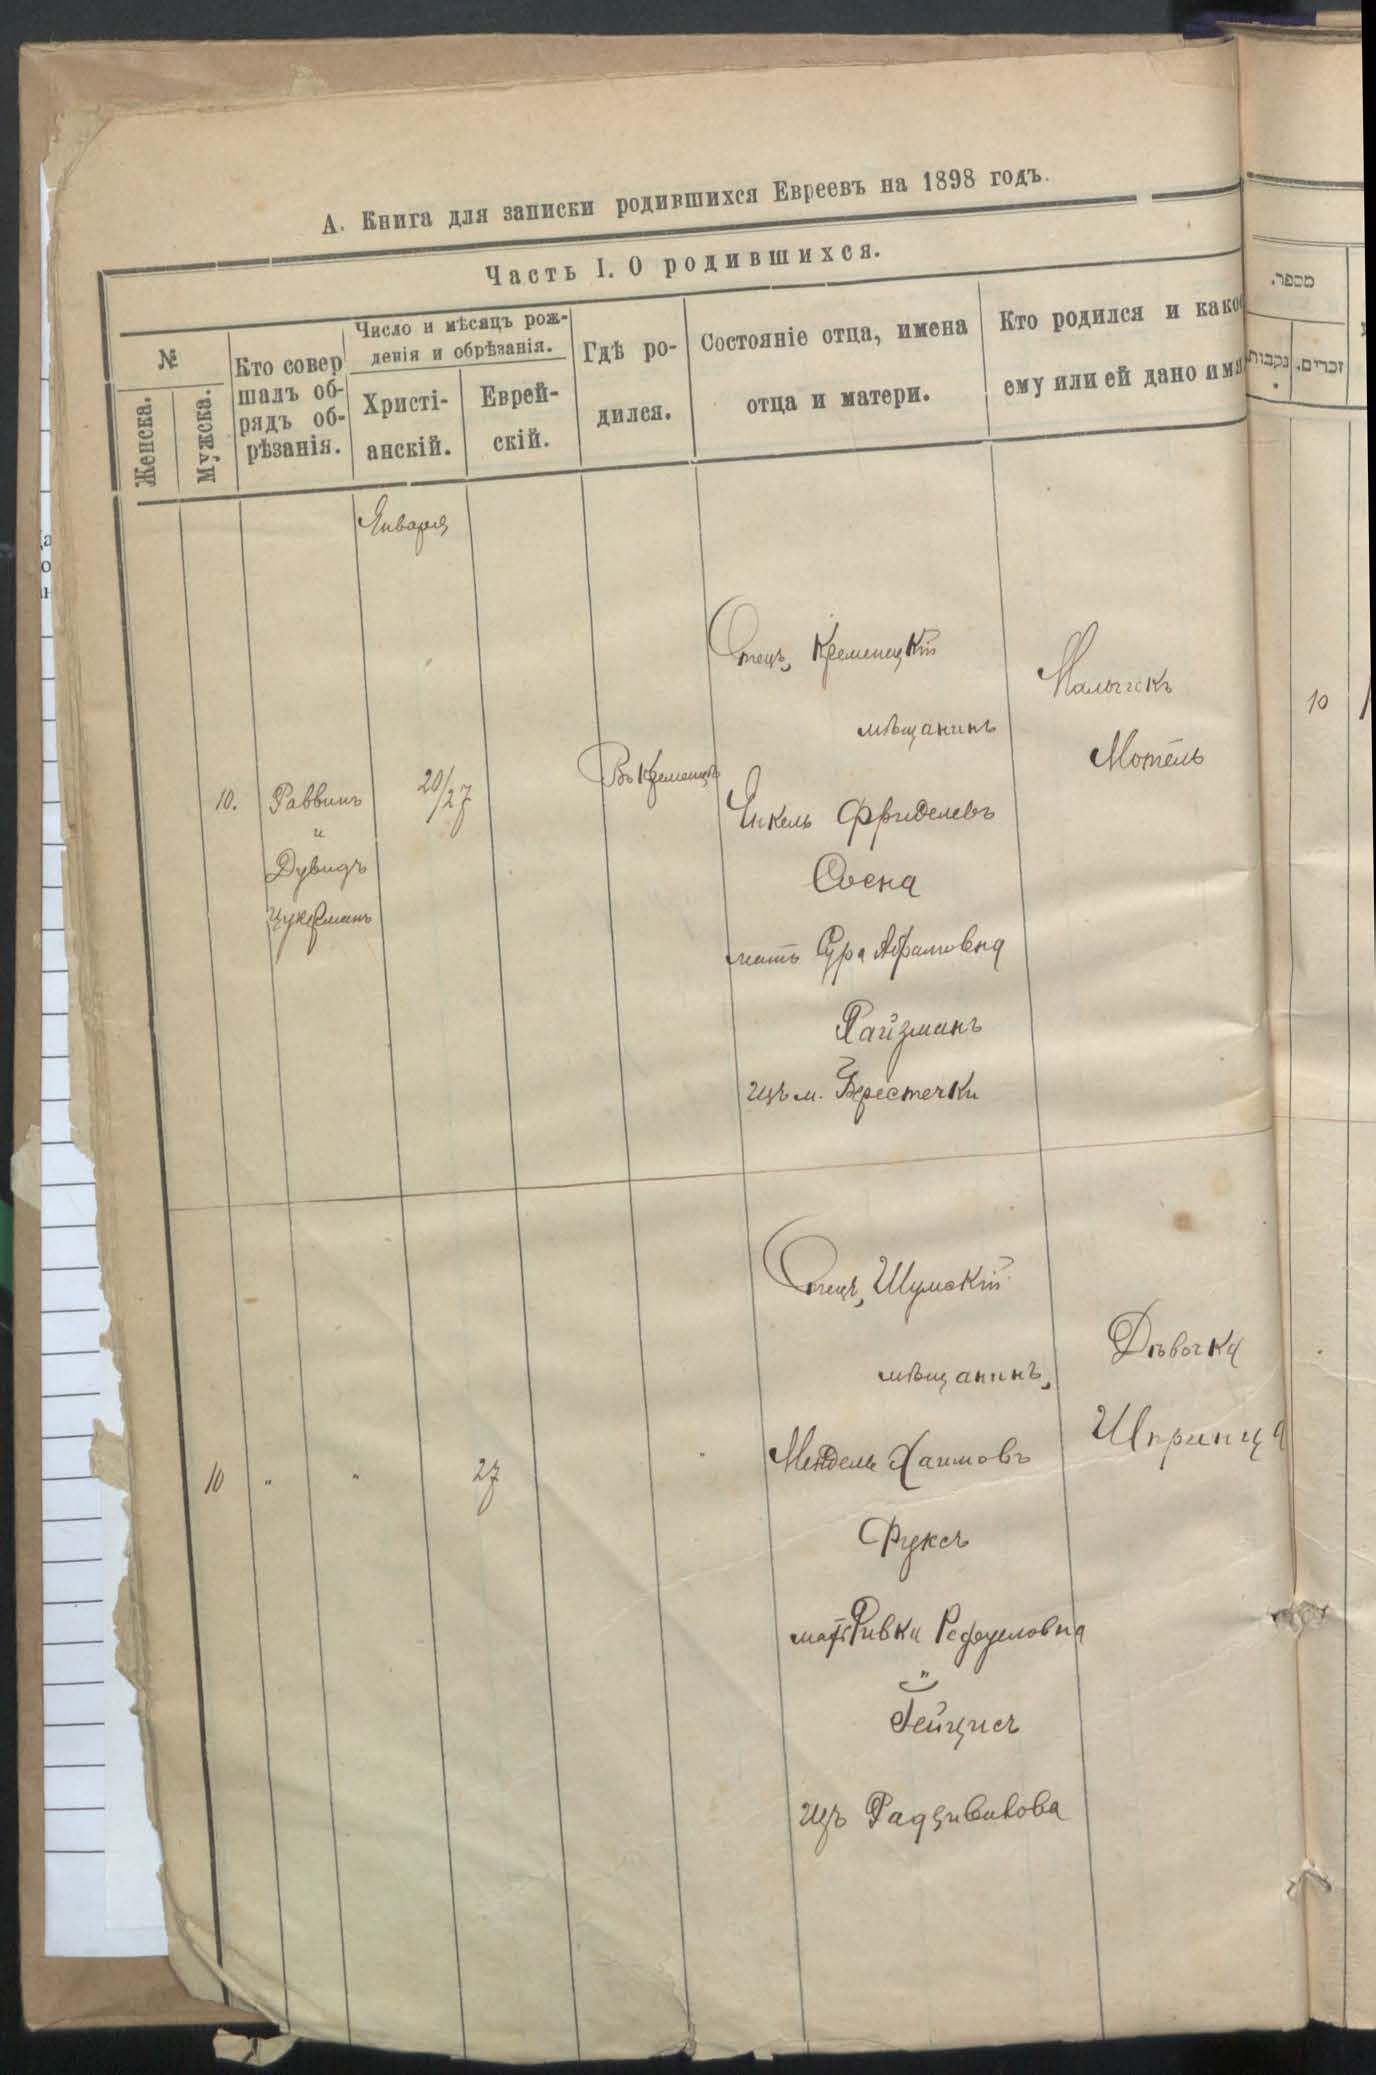 А. Книга для записки родившихся Евреевъ на 1898 годъ.
Часть I. О родившихся.
№
Женска.
Мужска.
Кто совер
шалъ об-
рядъ об-
рѣзанія.
Число и мѣсяцъ рож-
денія и обрѣзанія.
Христі-
анскій.
Еврей-
скій.
Гдѣ ро-
дился.
Состояніе отца, имена
отца и матери.
Кто родился и како
ему или ей дано имя
מספר.
נקבות.
זכרים.
Января
10.
Раввинъ
и
Дувидъ
Цукерманъ
20/27
Въ Кременцѣ
Отецъ, Кременецкій
мѣщанинъ
Янкель Фриделевъ
Сосна
мать Сура Абрамовна
Райзманъ
изъ м. Берестечки
Мальчикъ
Мотель
10
10
"
"
27
Отецъ, Шумскій
мѣщанинъ,
Мендель Хаимовъ
Фуксъ
мать Ривка
Гейцисъ
изъ Радзивилова
Дѣвочка
Шпринца